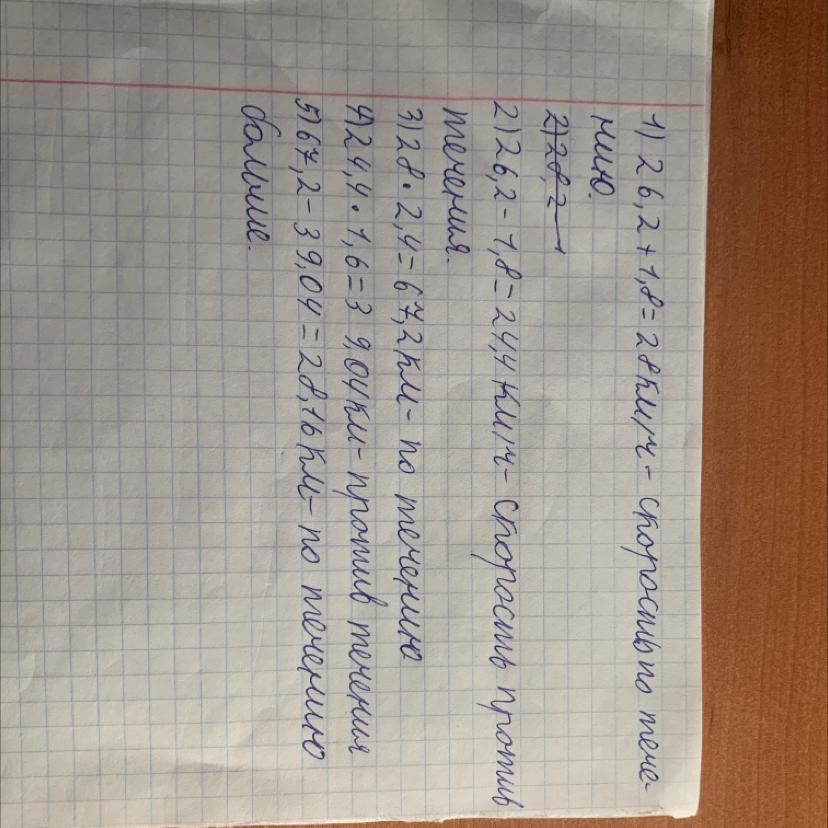 1) 26,2+1,8=28км/ч- скорость по тече-
нию.
2) 28,2-
2) 26,2-1,8=24,4км/ч- скорость против
течения.
3) 28·2,4=67,2км- по течению
4) 24,4·1,6=39,04км- против течения
5) 67,2-39,04=28,16км- по течению
больше.